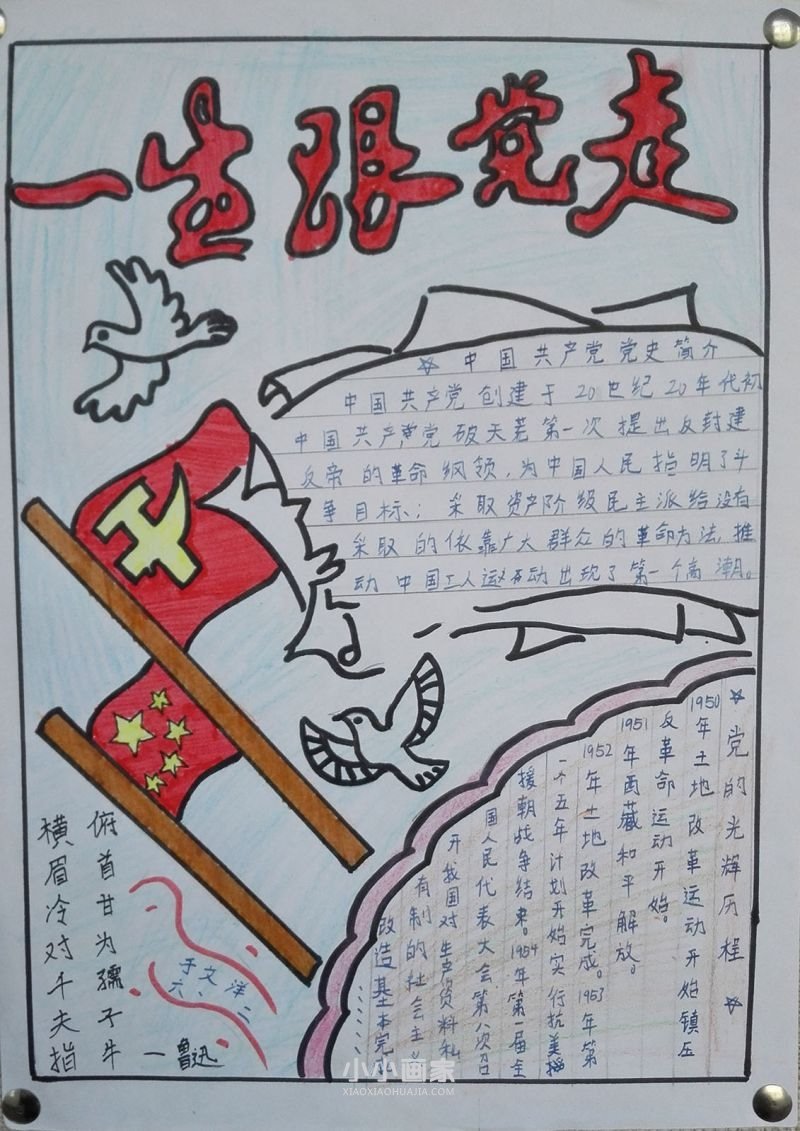 一生跟党走
☆ 中国共产党党史简介
中国共产党创建于20世纪20年代初
中国共产党破天荒第一次提出反封建
反帝的革命纲领,为中国人民指明了斗
争目标;采取资产阶级民主派给没有
采取的依靠广大群众的革命为法,推
动中国工人运动出现了第一个高潮。
☆党的光辉历程☆
1950年土地改革运动开始镇压
反革命运动开始。
1951年西藏和平解放。
1952年土地改革完成。1953年第
一个五年计划开始实行抗美援
援朝战争结束。1954年第一届全
国人民代表大会第八次召
开我国对生产资料私
有制的社会主义
改造基本完成
横眉冷对千夫指
俯首甘为孺子牛
—鲁迅
六、二
于文洋
小小画家
XIAOXIAOHUAJIA.COM